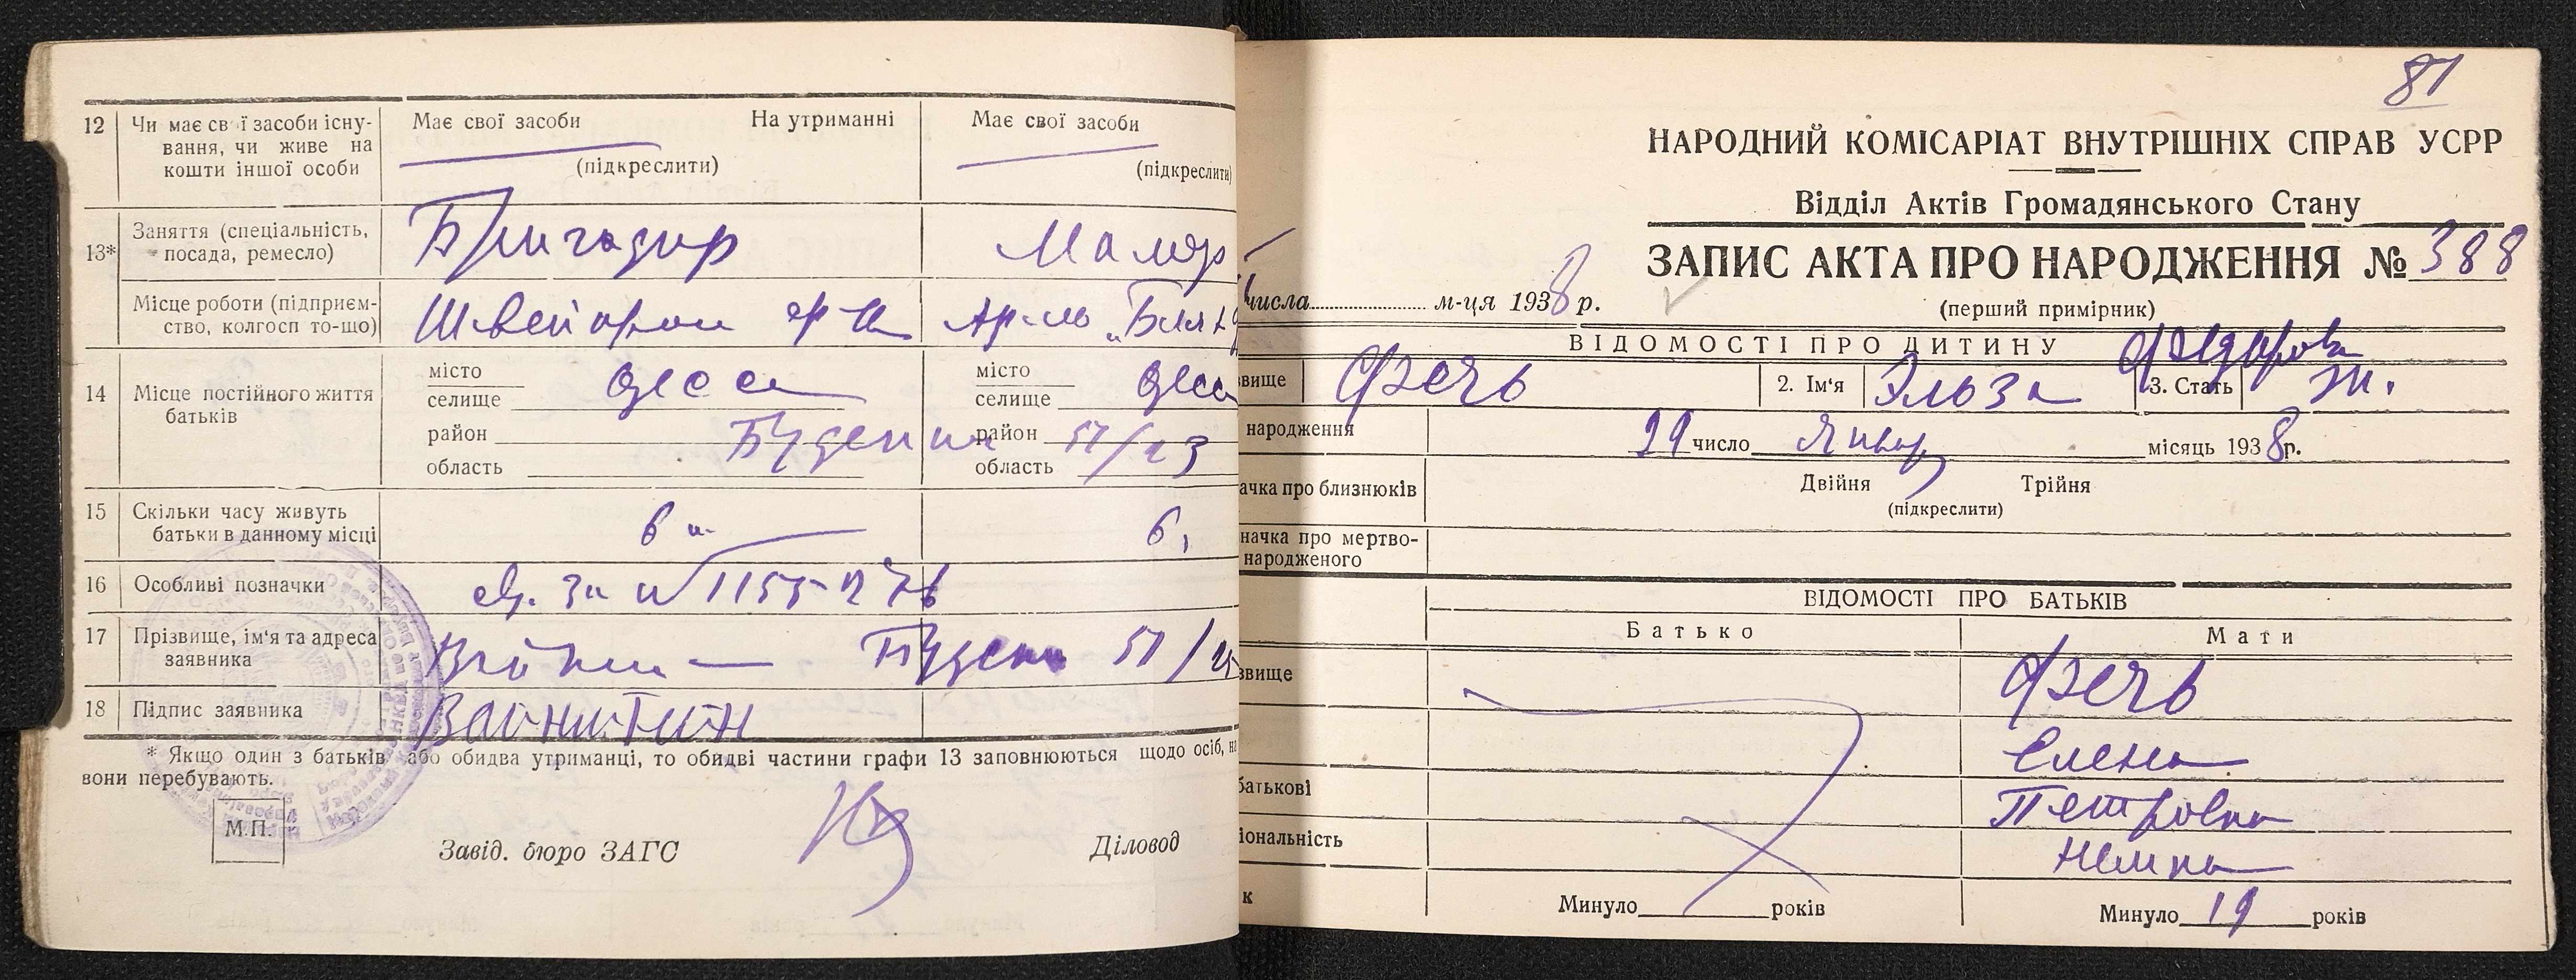 12 Чи має св ї засоби існу-
вання, чи живе на
кошти іншої особи
Має свої засоби На утриманні
(підкреслити)
Має свої засоби
(підкреслити)
13* Заняття (спеціальність,
посада, ремесло)
Бригадир
Маляр
Місце роботи (підприєм-
ство, колгосп то-що)
Швейпром ф-ка
14 Місце постійного життя
батьків
місто
селище Одесса
район
область
Буденн
місто
селище
район 51/23
область
15 Скільки часу живуть
батьки в данному місці
6
6
16 Особливі позначки
17 Прізвище, ім'я та адреса
заявника
Буденн 51/
18 Підпис заявника
* Якщо один з батьків або обидва утриманці, то обидві частини графи 13 заповнюються щодо осіб, на
вони перебувають.
М.П.
Завід. бюро ЗАГС
Діловод
81
НАРОДНИЙ КОМІСАРІАТ ВНУТРІШНІХ СПРАВ УСРР
Відділ Актів Громадянського Стану
ЗАПИС АКТА ПРО НАРОДЖЕННЯ № 388
числа м-ця 1938 р.
(перший примірник)
ВІДОМОСТІ ПРО ДИТИНУ
Федорова
звище Фечь 2. Ім'я Эльза 3. Стать ж.
народження
29 число Январ місяць 1938 р.
ачка про близнюків
Двійня Трійня
(підкреслити)
начка про мертво-
народженого
ВІДОМОСТІ ПРО БАТЬКІВ
Батько Мати
звище Фечь
Елена
батькові Петровна
іональність Немка
к Минуло років Минуло 19 років